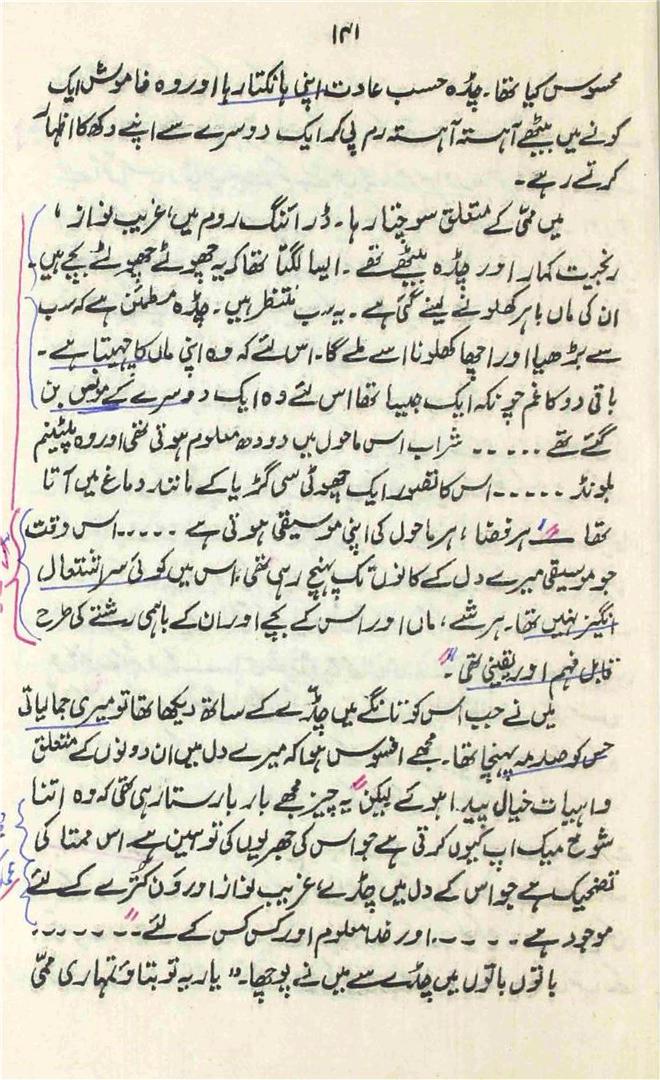 ۱۴۱
محسوس کیا تھا۔ چڈہ حسب عادت اپنی ہانکتا رہا اور وہ خاموش ایک
کونے میں بیٹھے آہستہ آہستہ رم پی کر ایک دوسرے سے اپنے دکھ کا اظہار
کرتے رہے۔
میں ممّی کے متعلق سوچتا رہا۔ ڈرائنگ روم میں، غریب نواز،
رنجیت کمار اور چڈہ بیٹھے تھے۔ ایسا لگتا تھا کہ یہ چھوٹے چھوٹے بچے ہیں۔
ان کی ماں باہر کھلونے لینے گئی ہے۔ یہ سب منتظر ہیں۔ چڈہ مطمئن ہے کہ سب
سے بڑھیا اور اچھا کھلونا اسے ملے گا۔ اس لئے کہ وہ اپنی ماں کا چہیتا ہے۔
باقی دو کا غم چونکہ ایک جیسا تھا اس لئے وہ ایک دوسرے کے مونس بن
گئے تھے ۔۔۔۔۔ شراب اس ماحول میں دودھ معلوم ہوتی تھی اور وہ پلیٹینم
بلونڈ ۔۔۔۔۔ اس کا تصور ایک چھوٹی سی گڑیا کے مانند دماغ میں آتا
تھا ــــ "ہر فضا، ہر ماحول کی اپنی موسیقی ہوتی ہے ۔۔۔۔۔ اس وقت
جو موسیقی میرے دل کے کانوں تک پہنچ رہی تھی، اس میں کوئی سر اشتعال
انگیز نہیں تھا۔ ہر شے، ماں اور اس کے بچے اور ان کے باہمی رشتے کی طرح
قابل فہم اور یقینی تھی۔"
میں نے جب اس کو تانگے میں چڈّے کے ساتھ دیکھا تھا تو میری جمالیاتی
حس کو صدمہ پہنچا تھا۔ مجھے افسوس ہوا کہ میرے دل میں ان دونوں کے متعلق
واہیات خیال پیدا ہوئے لیکن "یہ چیز مجھے بار بار ستا رہی تھی کہ وہ اتنا
شوخ میک اپ کیوں کرتی ہے جو اس کی جھریوں کی توہین ہے اس ممتا کی
تضحیک ہے جو اس کے دل میں چڈے، غریب نواز اور ون کترے کے لئے
موجود ہے ۔۔۔۔۔ اور خدا معلوم اور کس کس کے لئے" ۔۔۔۔۔۔۔
باتوں باتوں میں چڈے سے میں نے پوچھا۔ "یار یہ تو بتاؤ تمہاری ممّی